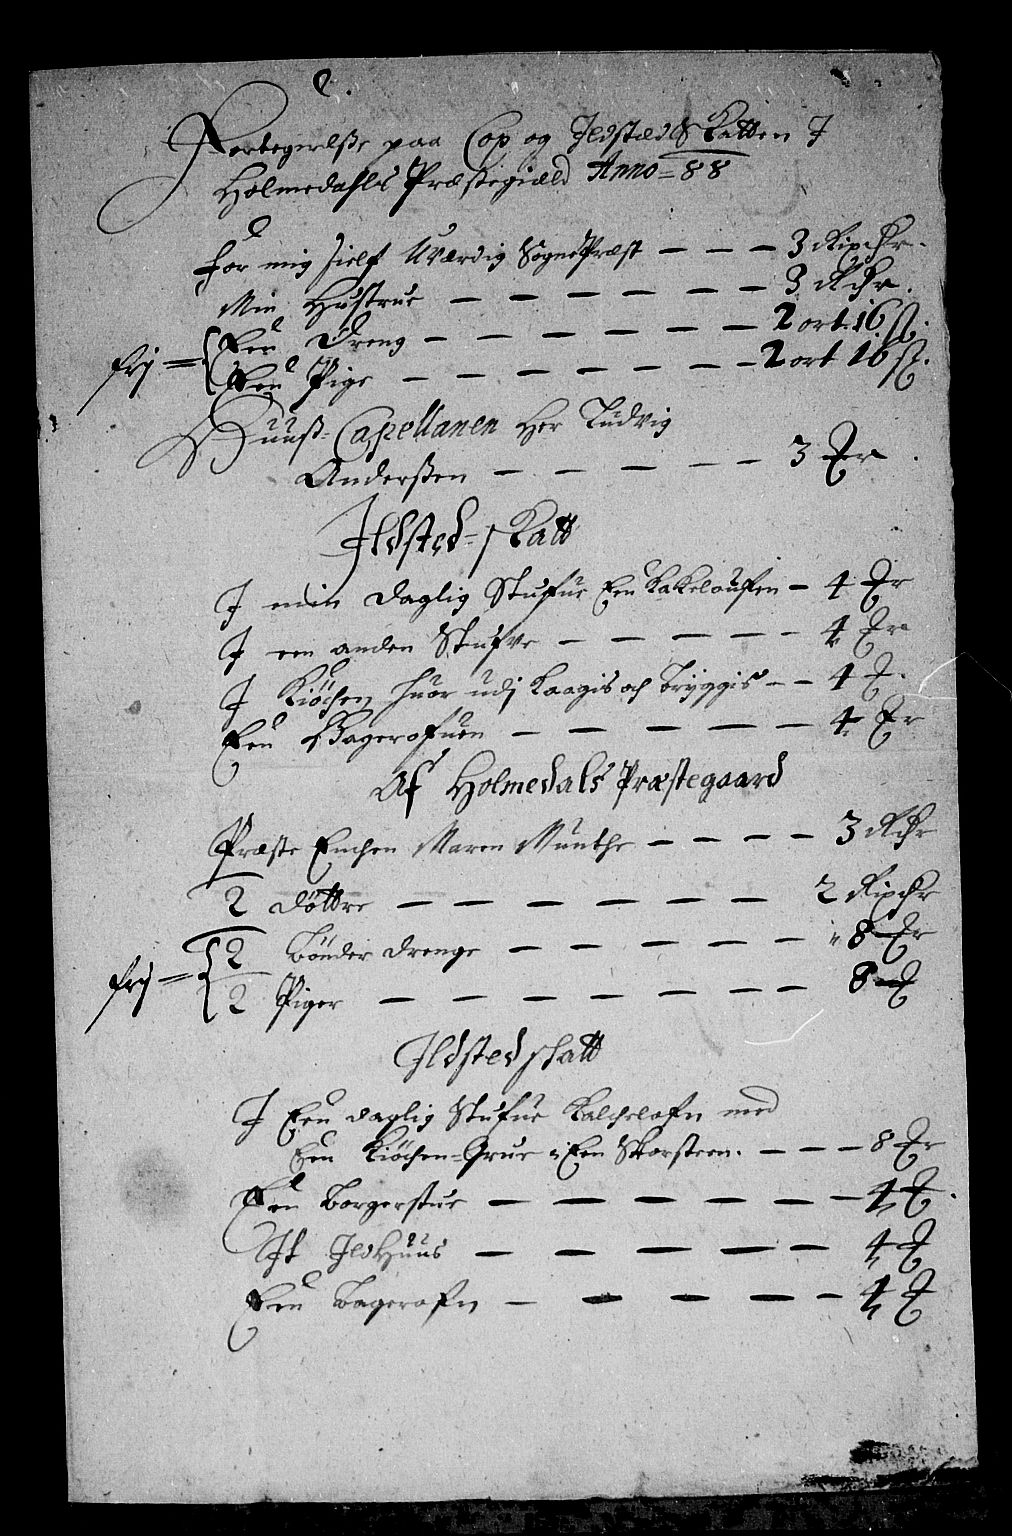 Fortegnelsse paa Cop og Ildstæd Skatten I
Holmedahls Præstegiæld Anno = 88
For mig sielf Uværdig SognePræst — — — 3 Rixdlr.
Min Hustrue — — — — — — 3 Rdlr.
Een Dreng — — — — — — 2 ort. 16 s.
frj = { Een Pige — — — — — — 2 ort 16 s.
Huuss-Capellanen Her Ludvig
Anderssen — — — — — 3
Ildsted-skatt
I min daglig Stufue Een Kakelouffen — 4
I een anden Stufve — — — — — 4
I Kiøchen huor udj Kaagis och Bryggis — — 4
Een Bagerofuen — — — — — 4
Af Holmedals Præstegaard
Præste Enchen Maren Munthe — — — — 3 Rdlr
2 døttre — — — — — — 2 Rixdlr
2 Bønder drenge — — — — — — 8
frj = { 2 Piger — — — — — — — — 8
Ildsted skatt
I Een daglig Stufue Kalchelofn med
Een Kiøchen-Grue i Een Skorsteen. — — — 8
Een Borgerstue — — — — — — — 4
It IldHuus — — — — — 4
Een Bagerofn — — — — — 4